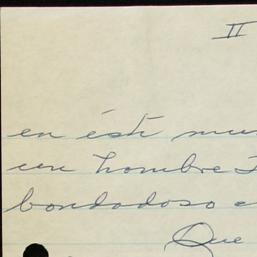 II
en ésti
un hombre
bondadoso
Que